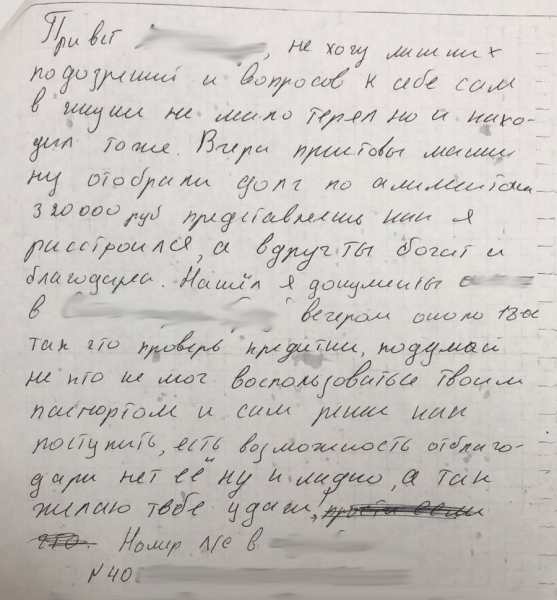 Привет , не хочу лишних
подозрений и вопросов к себе сам
в жизни не мало терял но и нахо-
дил тоже. Вчера приставы маши
ну отобрали долг по алиментам
320000 руб представляешь как я
расстроился, а вдруг ты богат и
благодарен. Нашёл я документы
в вечером около 1800
так что проверь кредитки, подумай
не кто не мог воспользоваться твоим
паспортом и сам реши как
поступить, есть возможность отблаго-
дари нет её ну и ладно, а так
желаю тебе удачи, прости если
что. Номер л/с в
№40